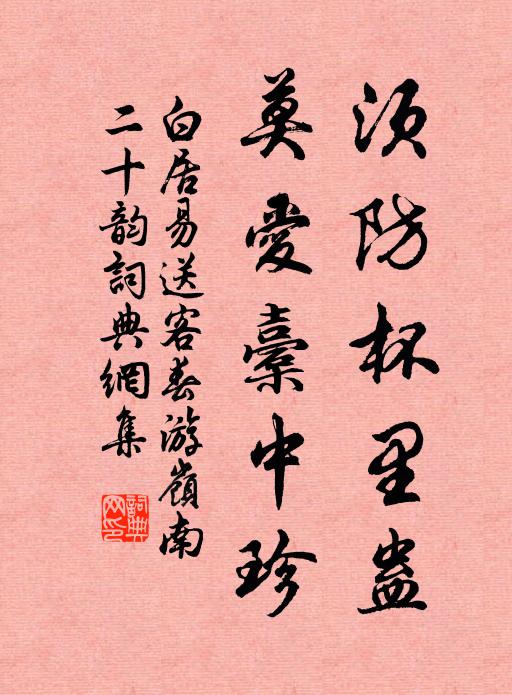 须防杯里蛊
莫愛橐中珍
白居易送客春游嶺南
二十韵詞典網集
詞典網印